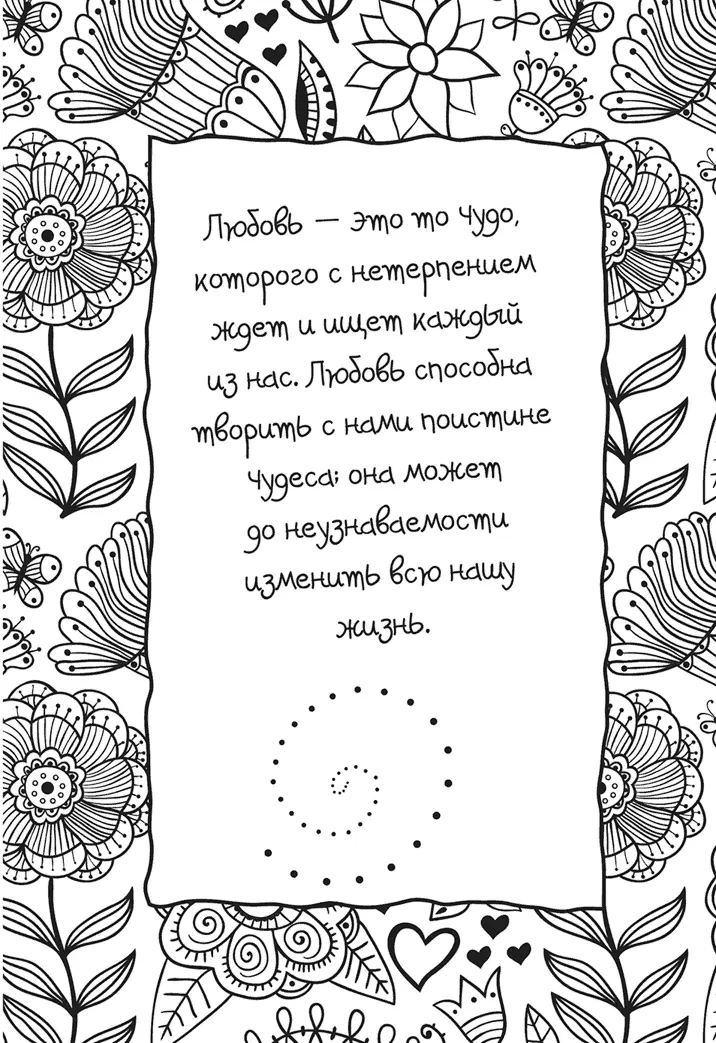 Любовь — это то чудо,
которого с нетерпением
ждет и ищет каждый
из нас. Любовь способна
творить с нами поистине
чудеса; она может
до неузнаваемости
изменить всю нашу
жизнь.